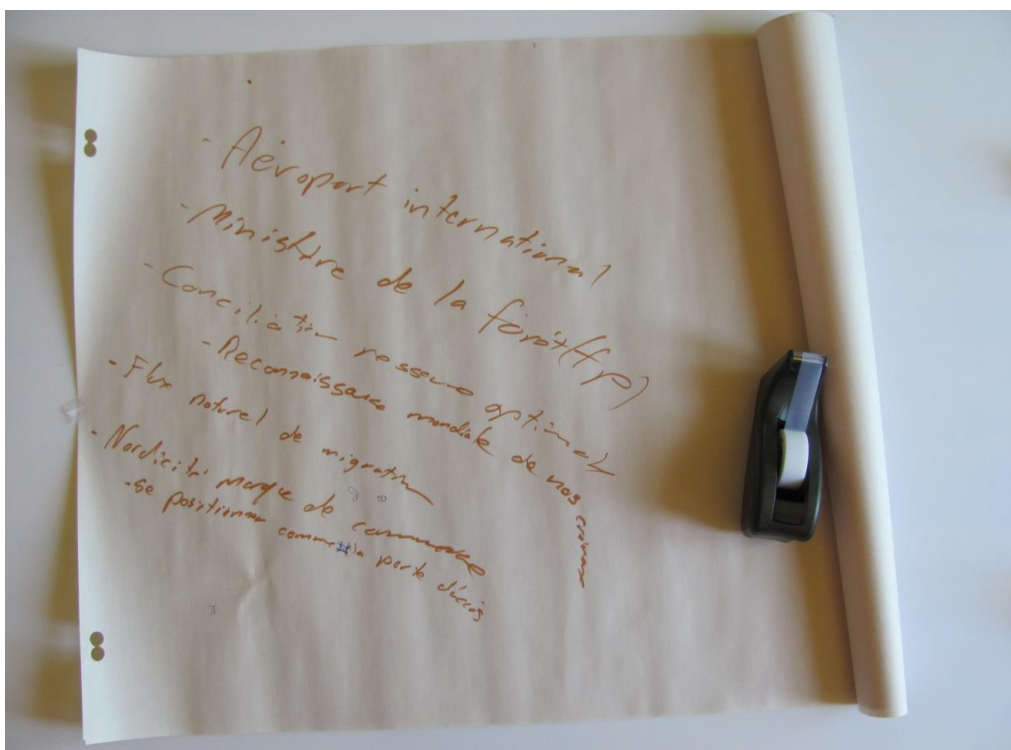 - Aéroport international
- Ministère de la forêt (fp)
- Conciliation optimale
- Reconnaissance mondiale de nos
- Flux naturel de migration
- Nordicité marque de commerce
- se positionner comme la porte d'accès